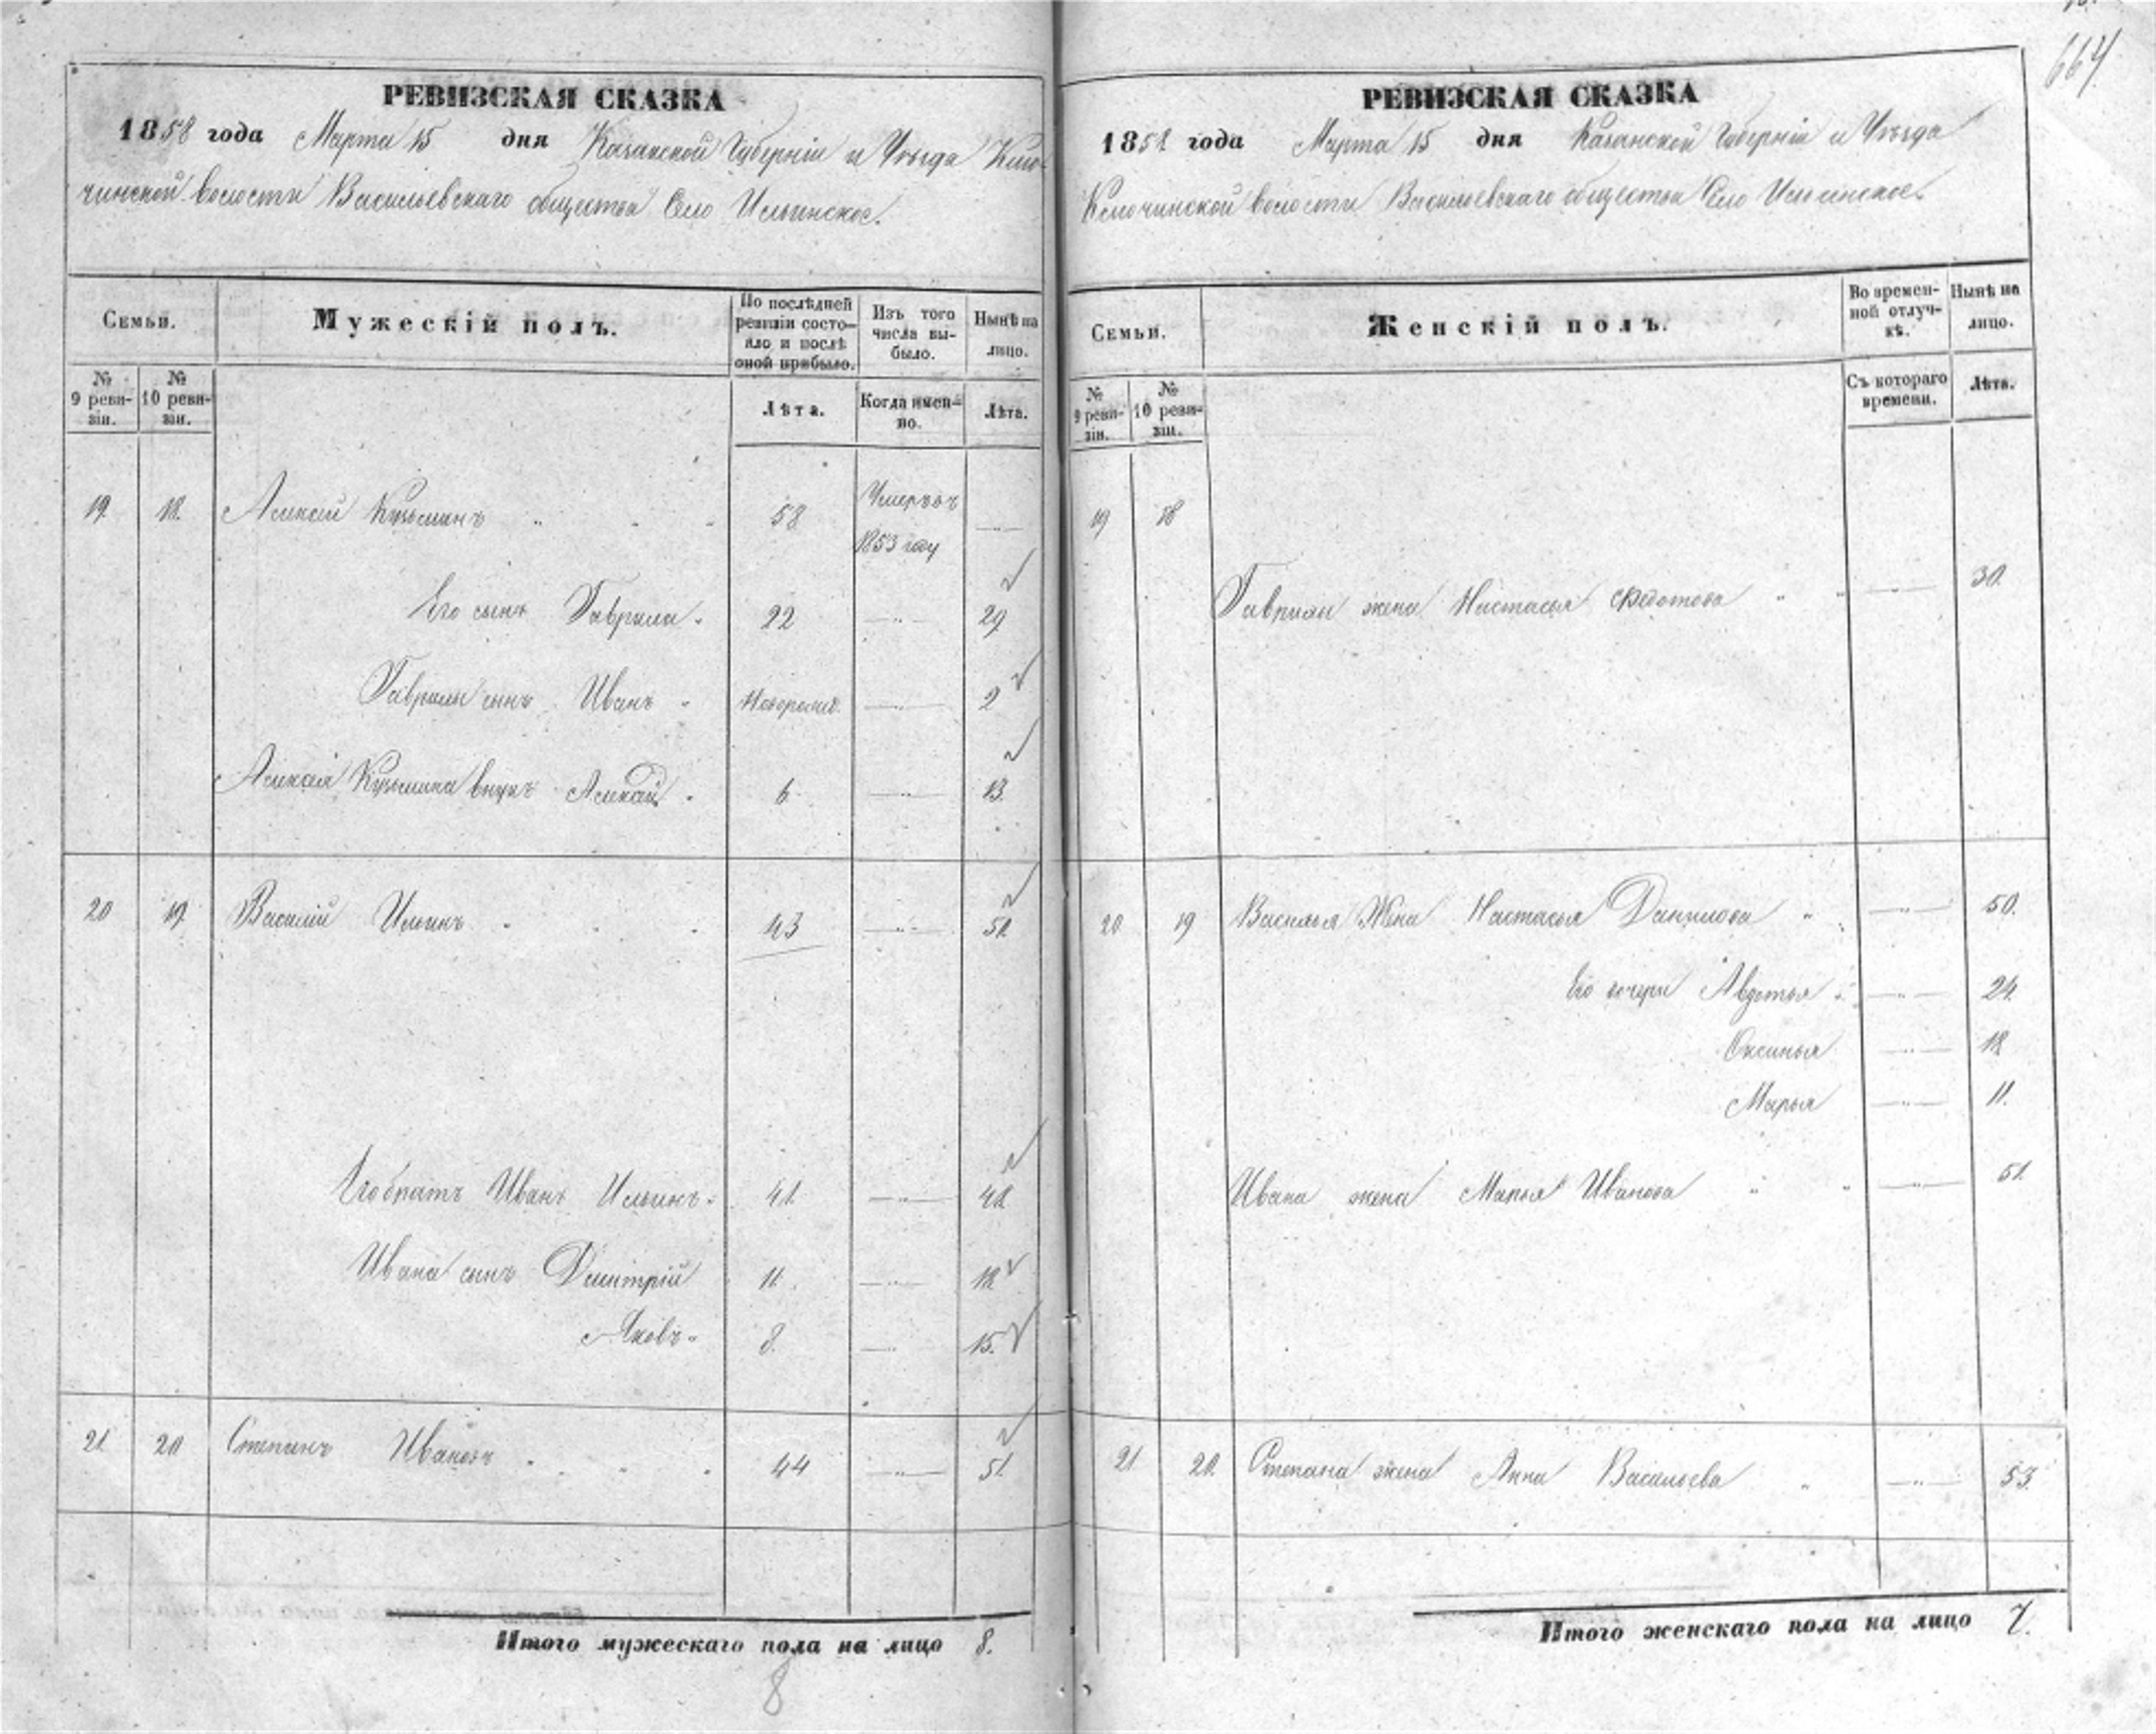 664
РЕВИЗСКАЯ СКАЗКА
1858 года Марта 15 дня Казанской Губерніи и Уѣзда Клю-
чинской волости Васильевскаго общества Село Ильинское.
Семьи.
Мужескій полъ.
По послѣдней ревизіи состо-
яло и послѣ оной прибыло.
Изъ того числа вы-
было.
Нынѣ на лицо.
№ 9 реви-
зіи.
№ 10 реви-
зіи.
Лѣта.
Когда имен-
но.
Лѣта.
19. 18. Алексѣй Кузьминъ 58 Умеръ въ 1853 году
Его сынъ Гаврила 22 29
Гаврилы сынъ Иванъ Новорожд. 2
Алексѣя Кузьмина внукъ Алексѣй 6 13.
20 19 Василій Ильинъ 43 50.
Его братъ Иванъ Ильинъ 41 48
Ивана сынъ Дмитрій 11. 18
Яковъ 8. 15.
21 20 Степанъ Ивановъ 44 51.
Итого мужескаго пола на лицо 8.
8
РЕВИЗСКАЯ СКАЗКА
1858 года Марта 15 дня Казанской Губерніи и Уѣзда
Ключинской волости Васильевскаго общества Село Ильинское.
Семьи.
Женскій полъ.
Во времен-
ной отлуч-
кѣ.
Нынѣ на лицо.
№ 9 реви-
зіи.
№ 10 реви-
зіи.
Съ котораго времени.
Лѣта.
19 18
Гаврилы жена Настасья Федотова 30.
20 19 Василья Жена Настасья Данилова 50.
Его дочери Авдотья 24.
Оксинья 18
Марья 11.
Ивана жена Марья Иванова 51.
21 20. Степана жена Анна Васильева 53.
Итого женскаго пола на лицо 7.